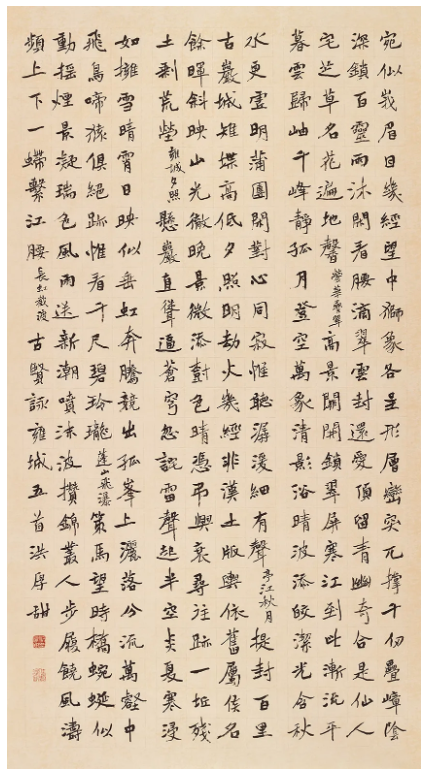 宛似峩眉目幾經望中獅象各呈形層巒突兀撐千仞疊嶂陰
深鎖百靈雨沐開看腰滴翠雲封還愛頂留青幽奇合是仙人
宅芝草名花遍地馨瑩華疊翠高景關開鎖翠屏寒江到此漸流平
暮雲歸岫千峰靜孤月登空萬象清影浴晴波添皎潔光含秋
水更靈明蒲團閑對心同寂惟聽潺湲細有聲亭江秋月提封百里
古巖城雉堞高低夕照明劫火幾經非漢土版輿依舊屬侯名
餘暉斜映山光微晚景微添對色晴憑弔興衰尋往跡一坵殘
土剩荒塋雍城夕照懸巖直聳逼蒼穹忽訝雷聲起半空炎夏寒浸
如擁雪晴霄日映似垂虹奔騰競出孤峯上灑落分流萬壑中
飛鳥啼猿俱絕跡惟看千尺碧玲瓏蓬山飛瀑策馬望時橋蜿蜒似
動搖煙景凝瑞色風雨送新潮噴沫波攢錦叢人步履饒風濤
頻上下一螮繫江腰長虹截波古賢詠雍城五首洪厚甜